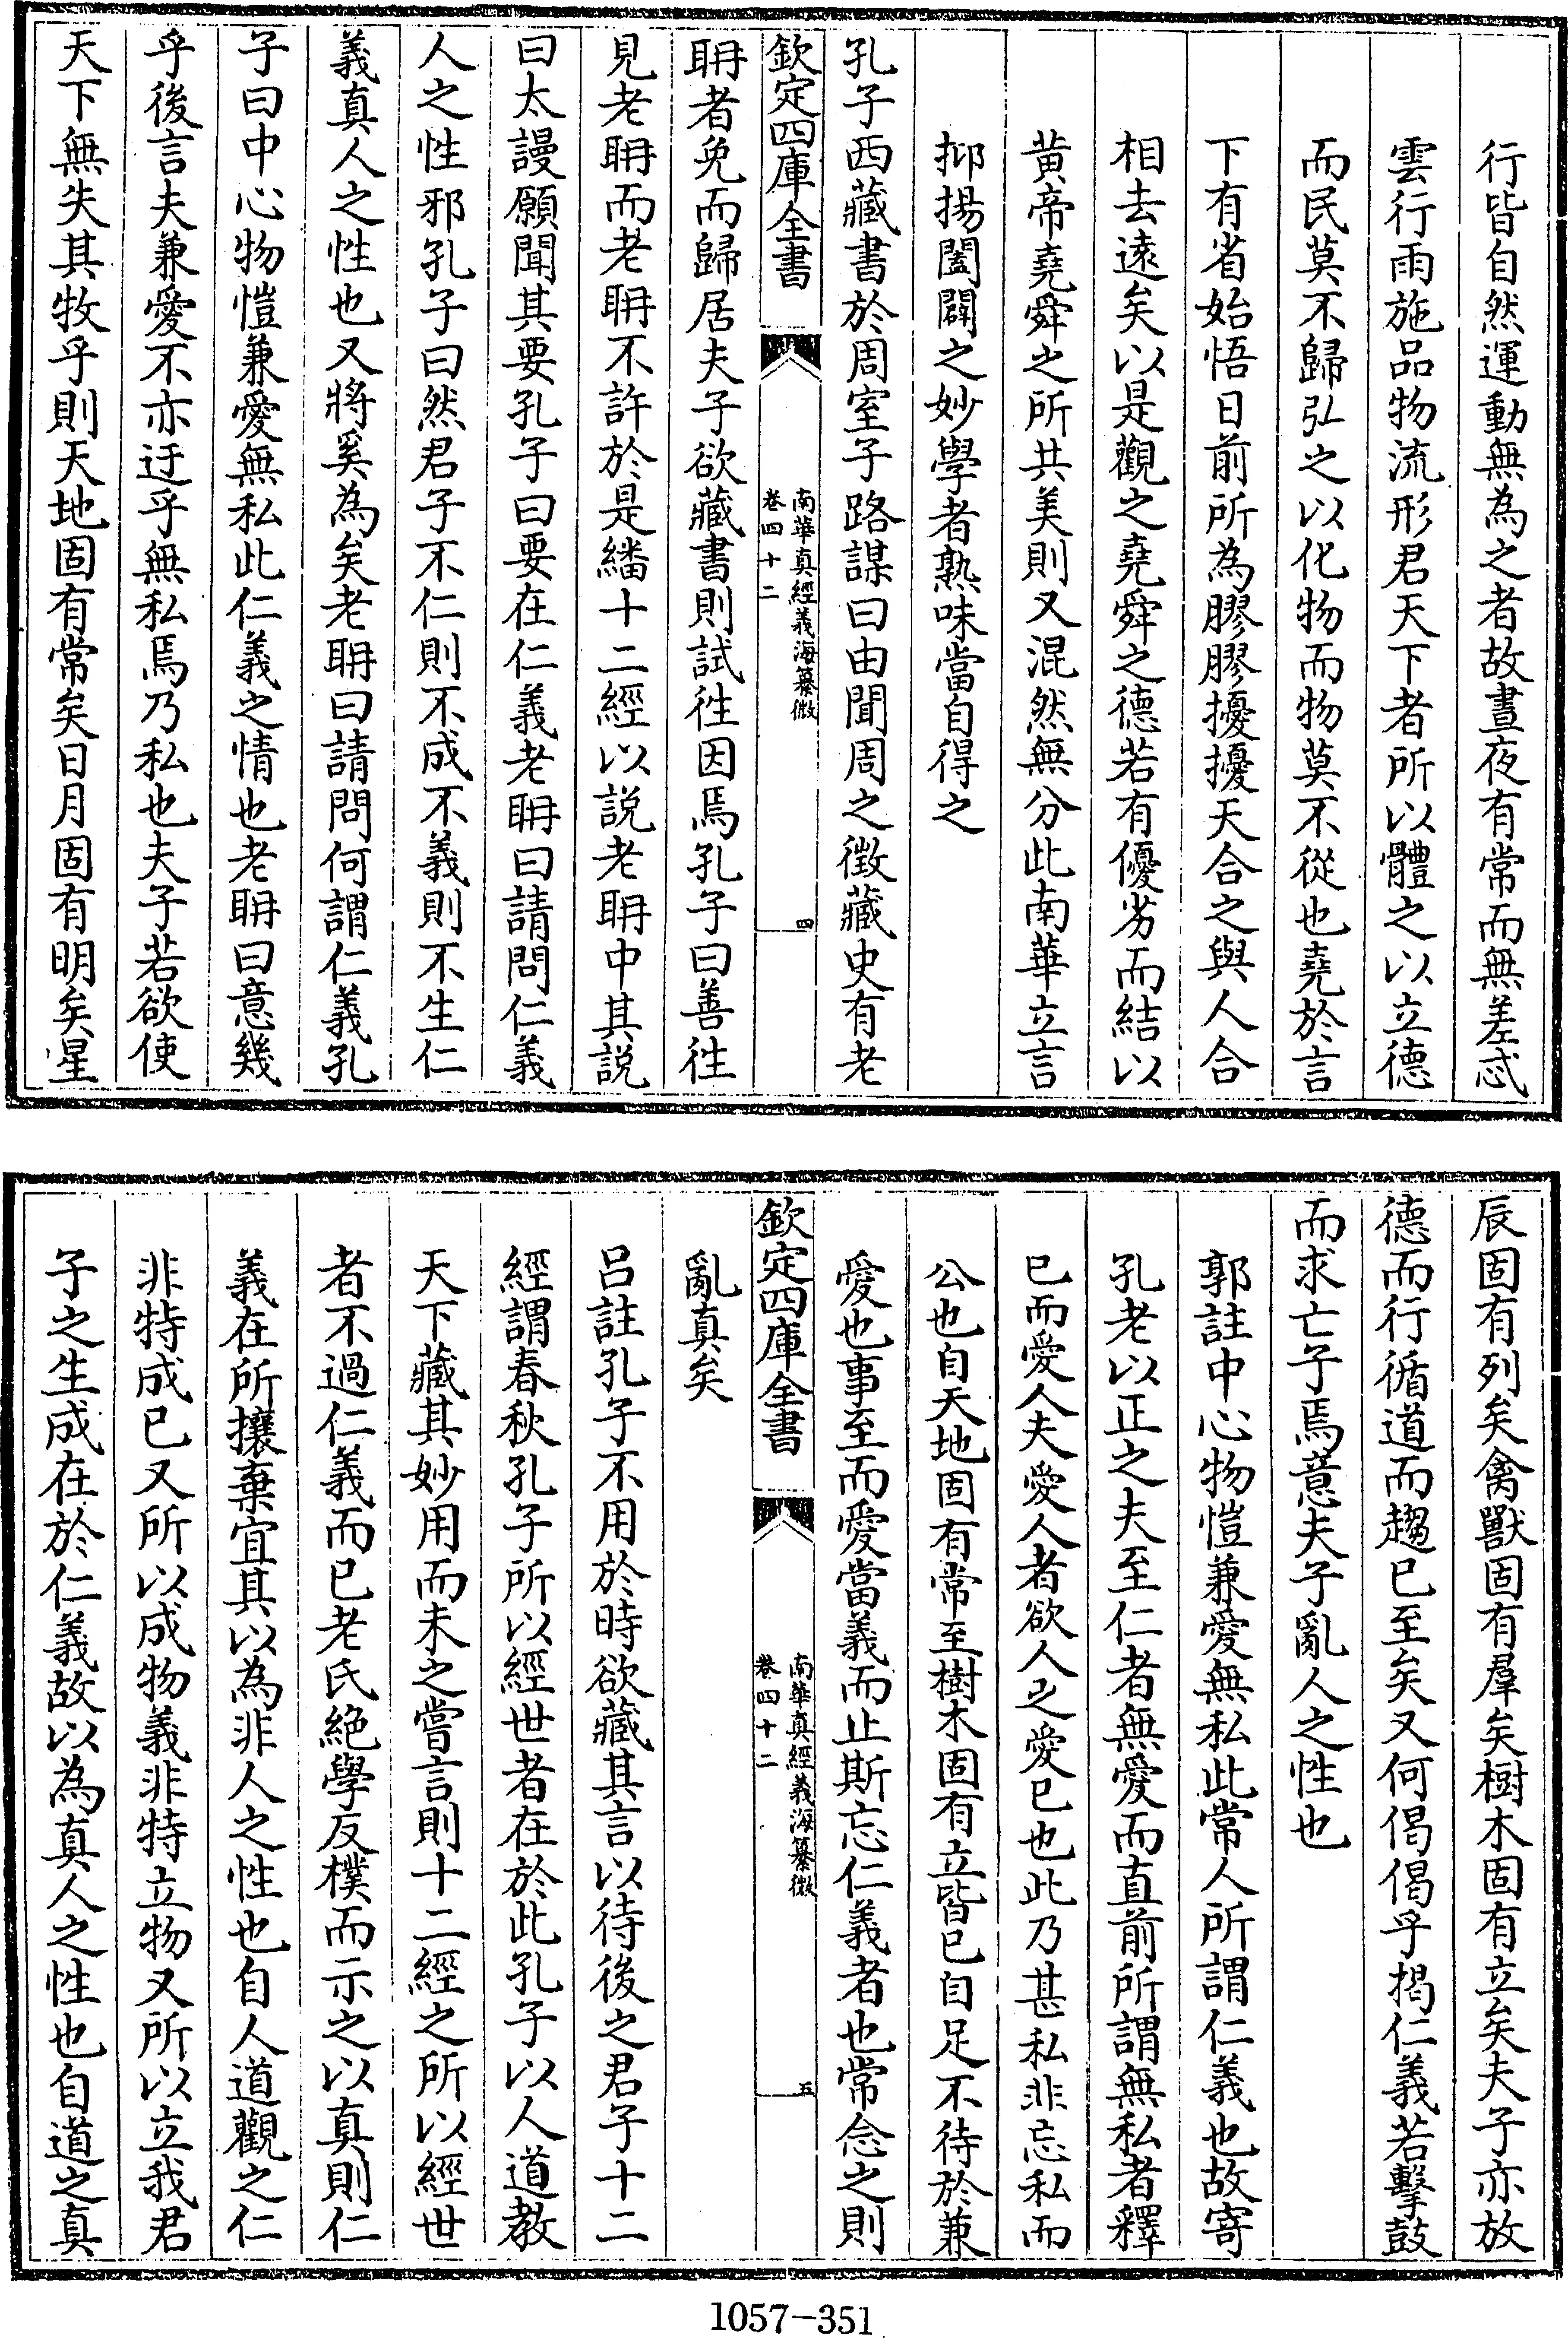 行皆自然運動無為之者故晝夜有常而無差忒
雲行雨施品物流形君天下者所以體之以立德
而民莫不歸弘之以化物而物莫不從也堯於言
下有省始悟日前所為膠膠擾擾天合之與人合
相去遠矣以是觀之堯舜之德若有優劣而結以
黄帝堯舜之所共美則又混然無分此南華立言
抑揚闔闢之妙學者熟味當自得之
孔子西藏書於周室子路謀曰由聞周之徵藏史有老
欽定四庫全書
南華真經義海纂微
卷四十二
四
聃者免而歸居夫子欲藏書則試徃因焉孔子曰善徃
見老聃而老聃不許於是繙十二經以説老聃中其説
曰太謾願聞其要孔子曰要在仁義老聃曰請問仁義
人之性邪孔子曰然君子不仁則不成不義則不生仁
義真人之性也又將奚為矣老聃曰請問何謂仁義孔
子曰中心物愷兼愛無私此仁義之情也老聃曰意幾
乎後言夫兼愛不亦迂乎無私焉乃私也夫子若欲使
天下無失其牧乎則天地固有常矣日月固有明矣星
辰固有列矣禽獸固有羣矣樹木固有立矣夫子亦放
德而行循道而趨已至矣又何偈偈乎揭仁義若擊鼓
而求亡子焉意夫子亂人之性也
郭註中心物愷兼愛無私此常人所謂仁義也故寄
孔老以正之夫至仁者無愛而直前所謂無私者釋
已而愛人夫愛人者欲人之愛已也此乃甚私非忘私而
公也自天地固有常至樹木固有立皆已自足不待於兼
愛也事至而愛當義而止斯忘仁義者也常念之則
欽定四庫全書
南華真經義海纂微
卷四十二
五
亂真矣
吕註孔子不用於時欲藏其言以待後之君子十二
經謂春秋孔子所以經世者在於此孔子以人道教
天下藏其妙用而未之嘗言則十二經之所以經世
者不過仁義而已老氏絶學反樸而示之以真則仁
義在所攘棄宜其以為非人之性也自人道觀之仁
非特成已又所以成物義非特立物又所以立我君
子之生成在於仁義故以為真人之性也自道之真
1057-351